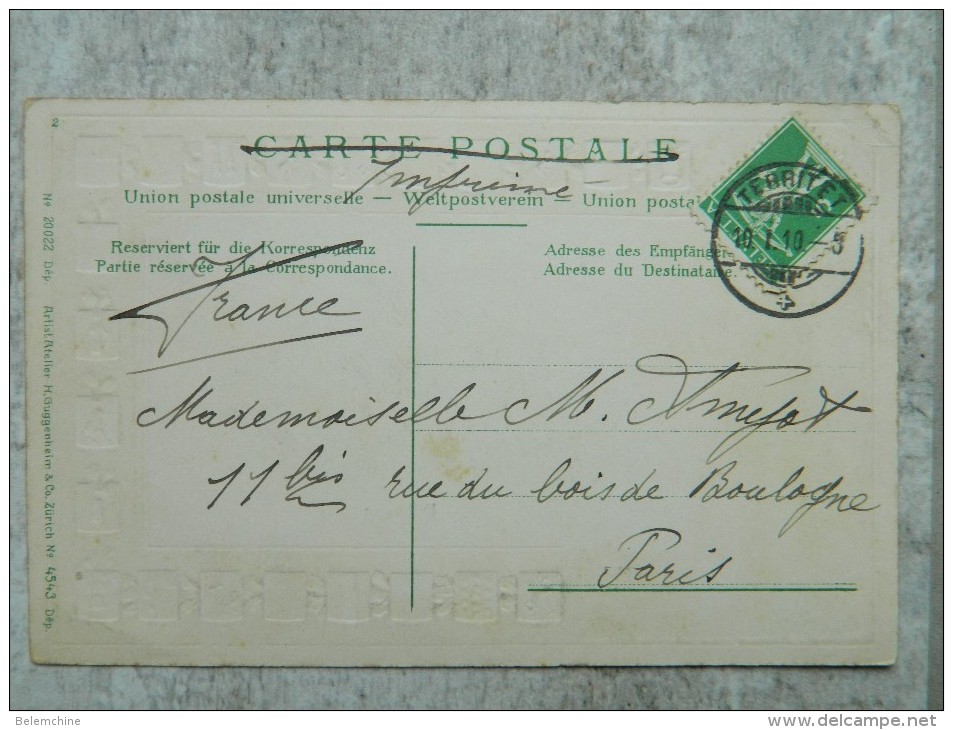 2
CARTE POSTALE
Imprimé
Union postale universelle — Weltpostverein — Union posta
TERRITET
10.I.10.-5
Reserviert für die Korrespondenz
Partie réservée à la Correspondance.
Adresse des Empfänger
Adresse du Destinataire.
France
Mademoiselle M.
11 bis rue du bois de Boulogne
Paris
No 20022 Dép. Artist. Atelier H. Guggenheim & Co. Zürich No 4543 Dép.
Belemchine
www.delcampe.net